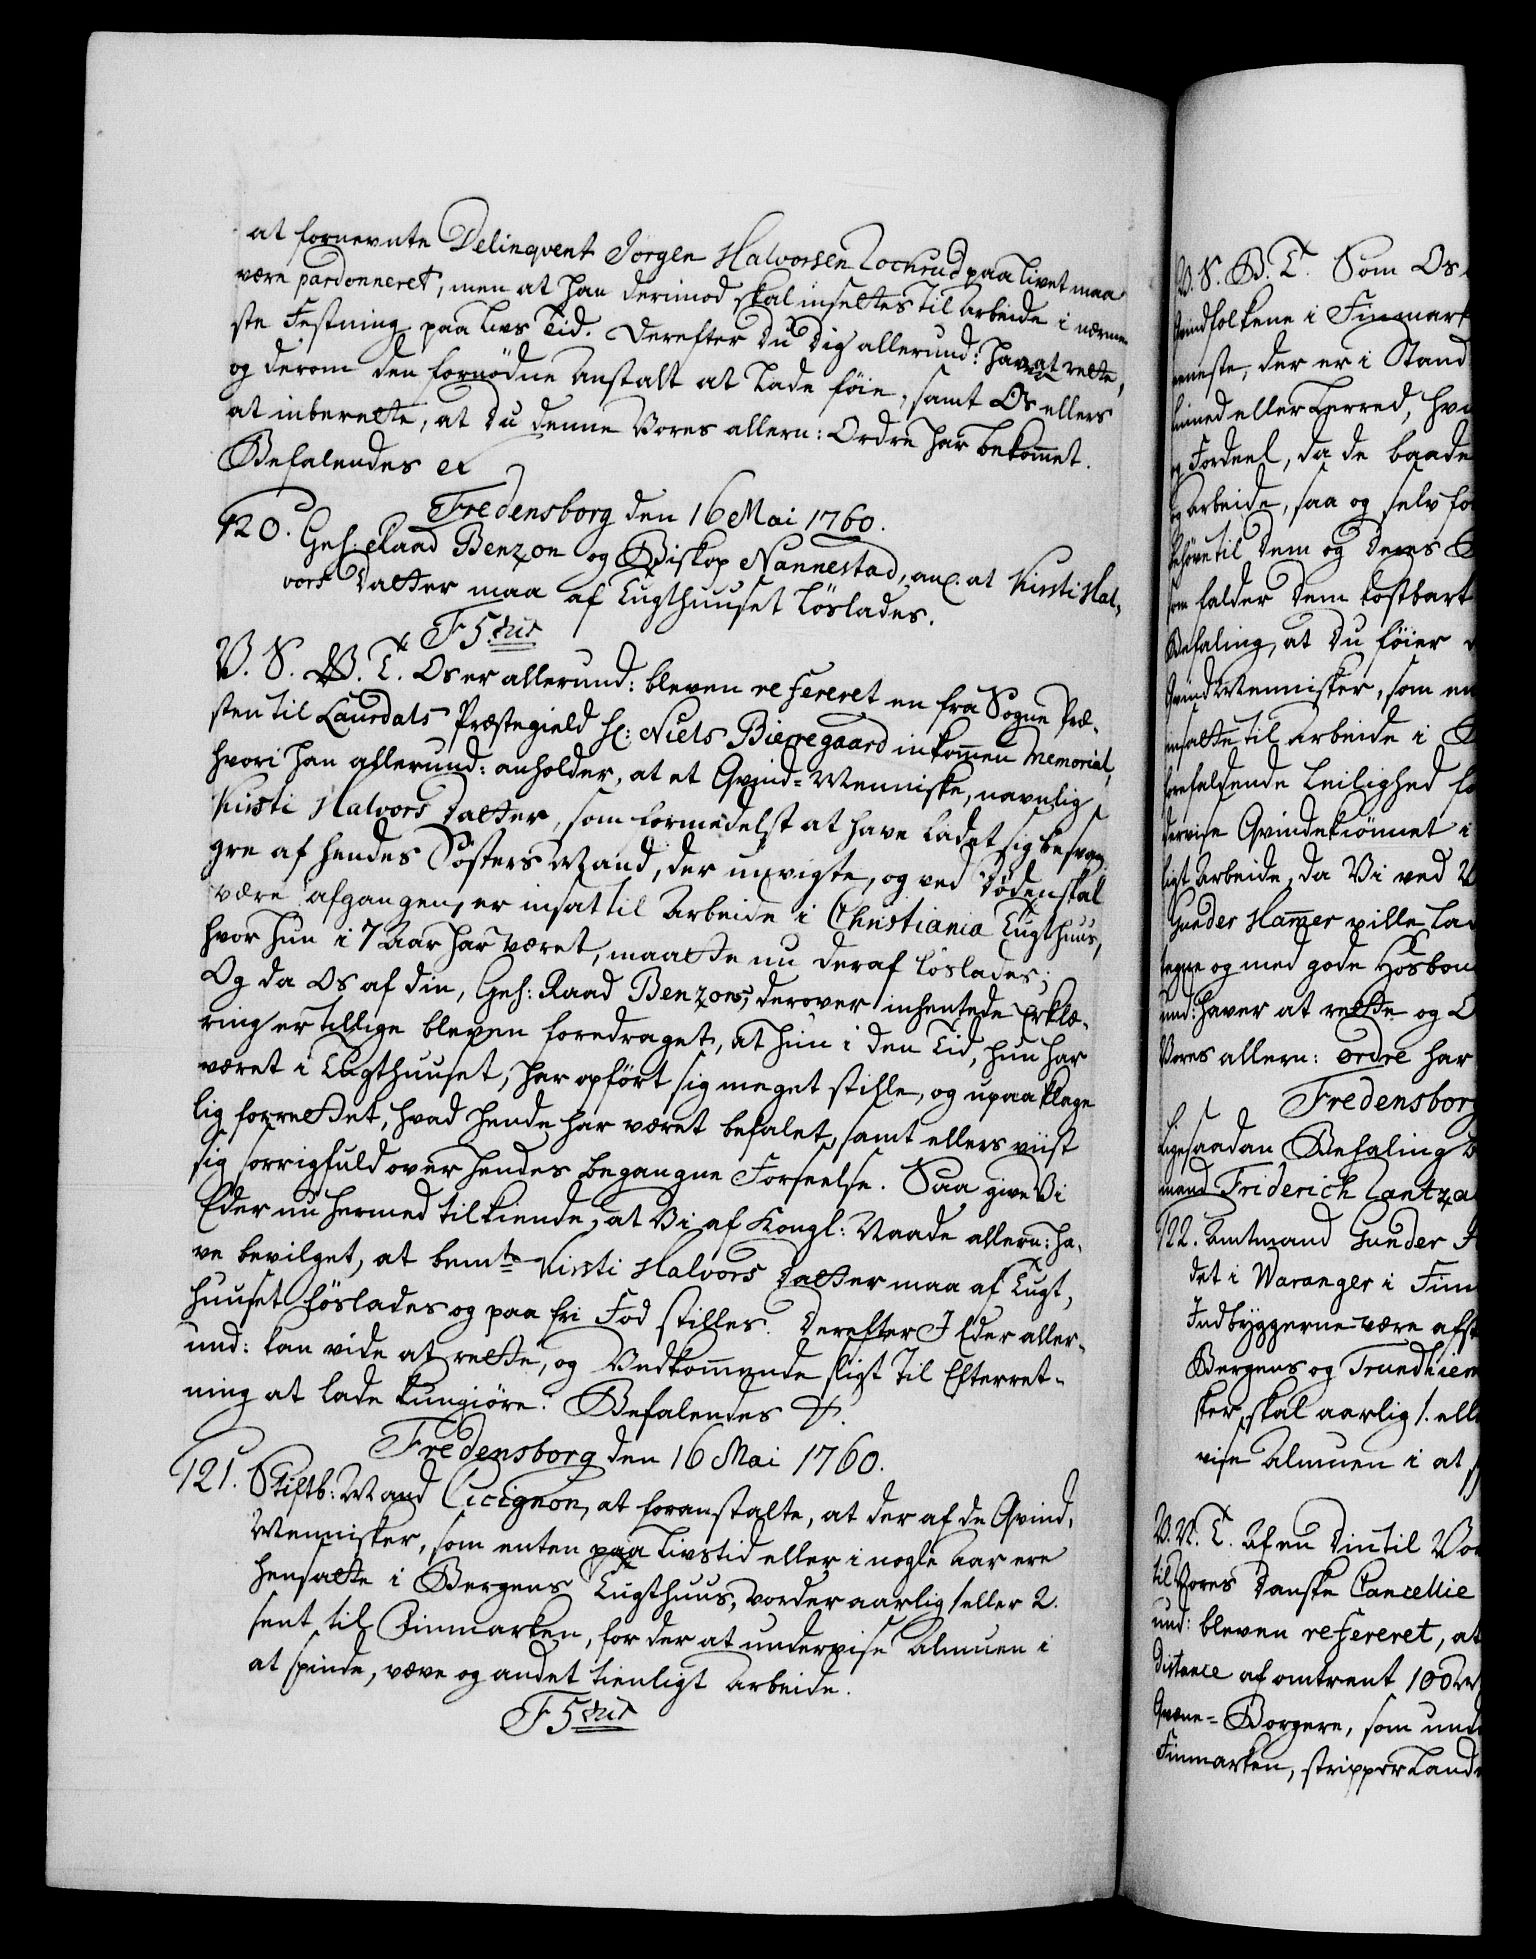 at fornevnte Delinqvent Jørgen Halvorsen Lochrud paa Livet maa
være pardonneret, men at han derimod skal insettes til Arbeide i nærme
ste Festning paa Livs Tid. Derefter Du Dig allerund: haver at rette,
og derom den fornødne Anstalt at lade føie, samt Os ellers
at inberette, at Du denne Vores allern: Ordre har bekommet.
Befalendes
Fredensborg den 16 Mai 1760.
120. Geh: Raad Benzon og Biskop Nannestad, anl. at Kirsti Hal,
vors Datter maa af Tugthuuset løslades.
F 5tus
V. S. V. T. Os er allerund: bleven refereret en fra Sogne Præ,
sten til Laurdals Præstegield Hr: Niels Bierregaard inkommen Memorial,
hvori han allerund: anholder, at et Qvind-Menniske, navnlig
Kirsti Halvors Datter, som formedelst at have ladet sig besvan,
gre af hendes Søsters Mand, der unvigte, og ved Døden skal
være afgangen, er insat til Arbeide i Christiania Tugthuus,
hvor hun i 7 Aar har været, maatte nu deraf løslades;
Og da Os af din, Geh: Raad Benzons, derover inhentede Erklæ,
ring er tillige bleven foredraget, at hun i den Tid, hun har
været i Tugthuuset, har opført sig meget stille, og upaaklage
lig forrettet, hvad hende har været befalet, samt ellers viist
sig sorrigfuld over hendes begangne Forseelse. Saa give Vi
Eder nu hermed tilkiende, at Vi af Kongl: Naade allern: ha,
ve bevilget, at bemte Kirsti Halvors Datter maa af Tugt,
huuset løslades og paa fri Fod stilles. Derefter I Eder aller,
und: kan vide at rette, og Vedkommende sligt til Efterret-
ning at lade kungiøre. Befalendes
Fredensborg den 16 Mai 1760.
121. Stiftb: Mand Cicignon, at foranstalte, at der af de Qvind,
Mennisker, som enten paa Livstid eller i nogle Aar ere
hensatte i Bergens Tugthuus, vorder aarlig 1 eller 2.
sent til Finmarken, for der at undervise Almuen i
at spinde, væve og andet tienligt Arbeide.
F 5tus
V. S. V. T. Som Os
Qvindfolkene i Finmark
eneste, der er i Stand
eller Lerred,
og Fordeel, da de baade
og Arbeide, saa og selv
behøve til Dem og Deres
som falder Dem kostbart
Befaling, at Du føier
Qvind Mennisker, som en
insatte til Arbeide i
forefaldende Leilighed
dervise Qvindekiønnet i
ligt Arbeide, da Vi ved
Gunder Hammer ville la
og med gode Hosbon
und: haver at rette og
Vores allern: Ordre har
Fredensborg
Ligesaadan Befaling
mand Friderich
122. Amtmand Gunder
det i Waranger i Fin
Indbyggerne være
Bergens og Trundhiem
sker, skal aarlig 1. ell
vise Almuen i at
V. V. T. Af en Din til Vo
til Vores Danske Cancellie
und: bleven refereret, at
Distance af omtrent 100
Borgere, som und
Finmarken, stripper Land